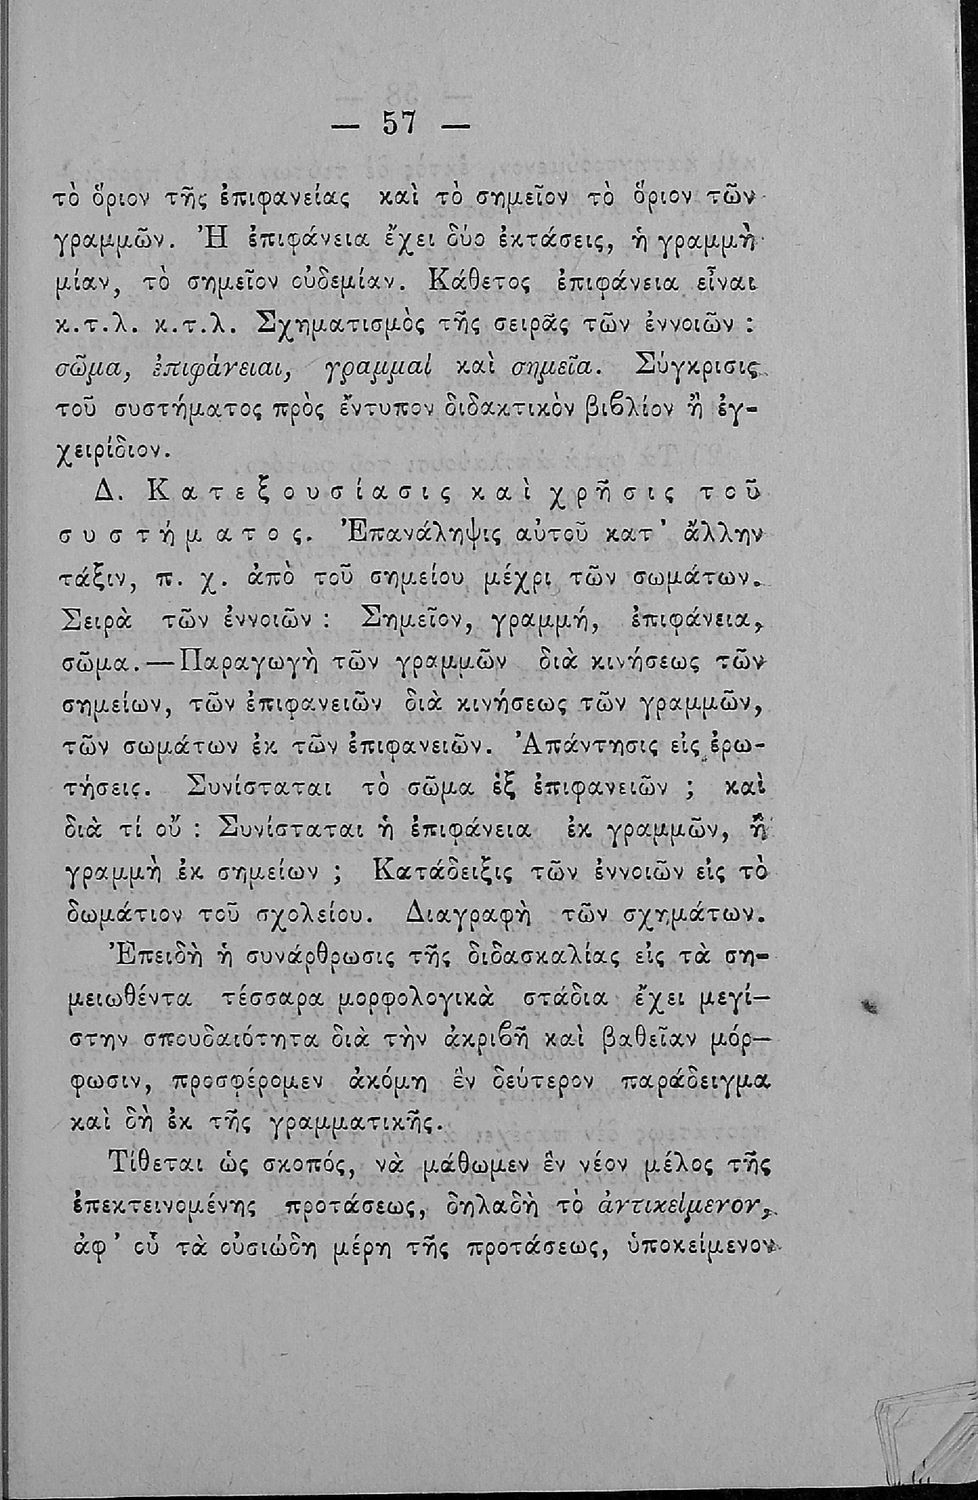 — 57 —
τὸ ὅριον τῆς ἐπιφανείας καὶ τὸ σημεῖον τὸ ὅριον τῶν
γραμμῶν. Ἡ ἐπιφάνεια ἔχει δύο ἐκτάσεις, ἡ γραμμὴ
μίαν, τὸ σημεῖον οὐδεμίαν. Κάθετος ἐπιφάνεια εἶναι
κ.τ.λ. κ.τ.λ. Σχηματισμὸς τῆς σειρᾶς τῶν ἐννοιῶν :
σῶμα, ἐπιφάνειαι, γραμμαὶ καὶ σημεῖα. Σύγκρισις
τοῦ συστήματος πρὸς ἔντυπον διδακτικὸν βιϐλίον ἢ ἐγ-
χειρίδιον.
Δ. Κατεξουσίασις καὶ χρῆσις τοῦ
συστήματος. Ἐπανάληψις αὐτοῦ κατ’ ἄλλην
τάξιν, π. χ. ἀπὸ τοῦ σημείου μέχρι τῶν σωμάτων.
Σειρὰ τῶν ἐννοιῶν : Σημεῖον, γραμμή, ἐπιφάνεια,
σῶμα.—Παραγωγὴ τῶν γραμμῶν διὰ κινήσεως τῶν
σημείων, τῶν ἐπιφανειῶν διὰ κινήσεως τῶν γραμμῶν,
τῶν σωμάτων ἐκ τῶν ἐπιφανειῶν. Ἀπάντησις εἰς ἐρω-
τήσεις. Συνίσταται τὸ σῶμα ἐξ ἐπιφανειῶν ; καὶ
διὰ τί οὔ : Συνίσταται ἡ ἐπιφάνεια ἐκ γραμμῶν, ἢ
γραμμὴ ἐκ σημείων ; Κατάδειξις τῶν ἐννοιῶν εἰς τὸ
δωμάτιον τοῦ σχολείου. Διαγραφὴ τῶν σχημάτων.
Ἐπειδὴ ἡ συνάρθρωσις τῆς διδασκαλίας εἰς τὰ ση-
μειωθέντα τέσσαρα μορφολογικὰ στάδια ἔχει μεγί-
στην σπουδαιότητα διὰ τὴν ἀκριϐῆ καὶ βαθεῖαν μόρ-
φωσιν, προσφέρομεν ἀκόμη ἓν δεύτερον παράδειγμα
καὶ δὴ ἐκ τῆς γραμματικῆς.
Τίθεται ὡς σκοπός, νὰ μάθωμεν ἓν νέον μέλος τῆς
ἐπεκτεινομένης προτάσεως, δηλαδὴ τὸ ἀντικείμενον,
ἀφ’ οὗ τὰ οὐσιώδη μέρη τῆς προτάσεως, ὑποκείμενον